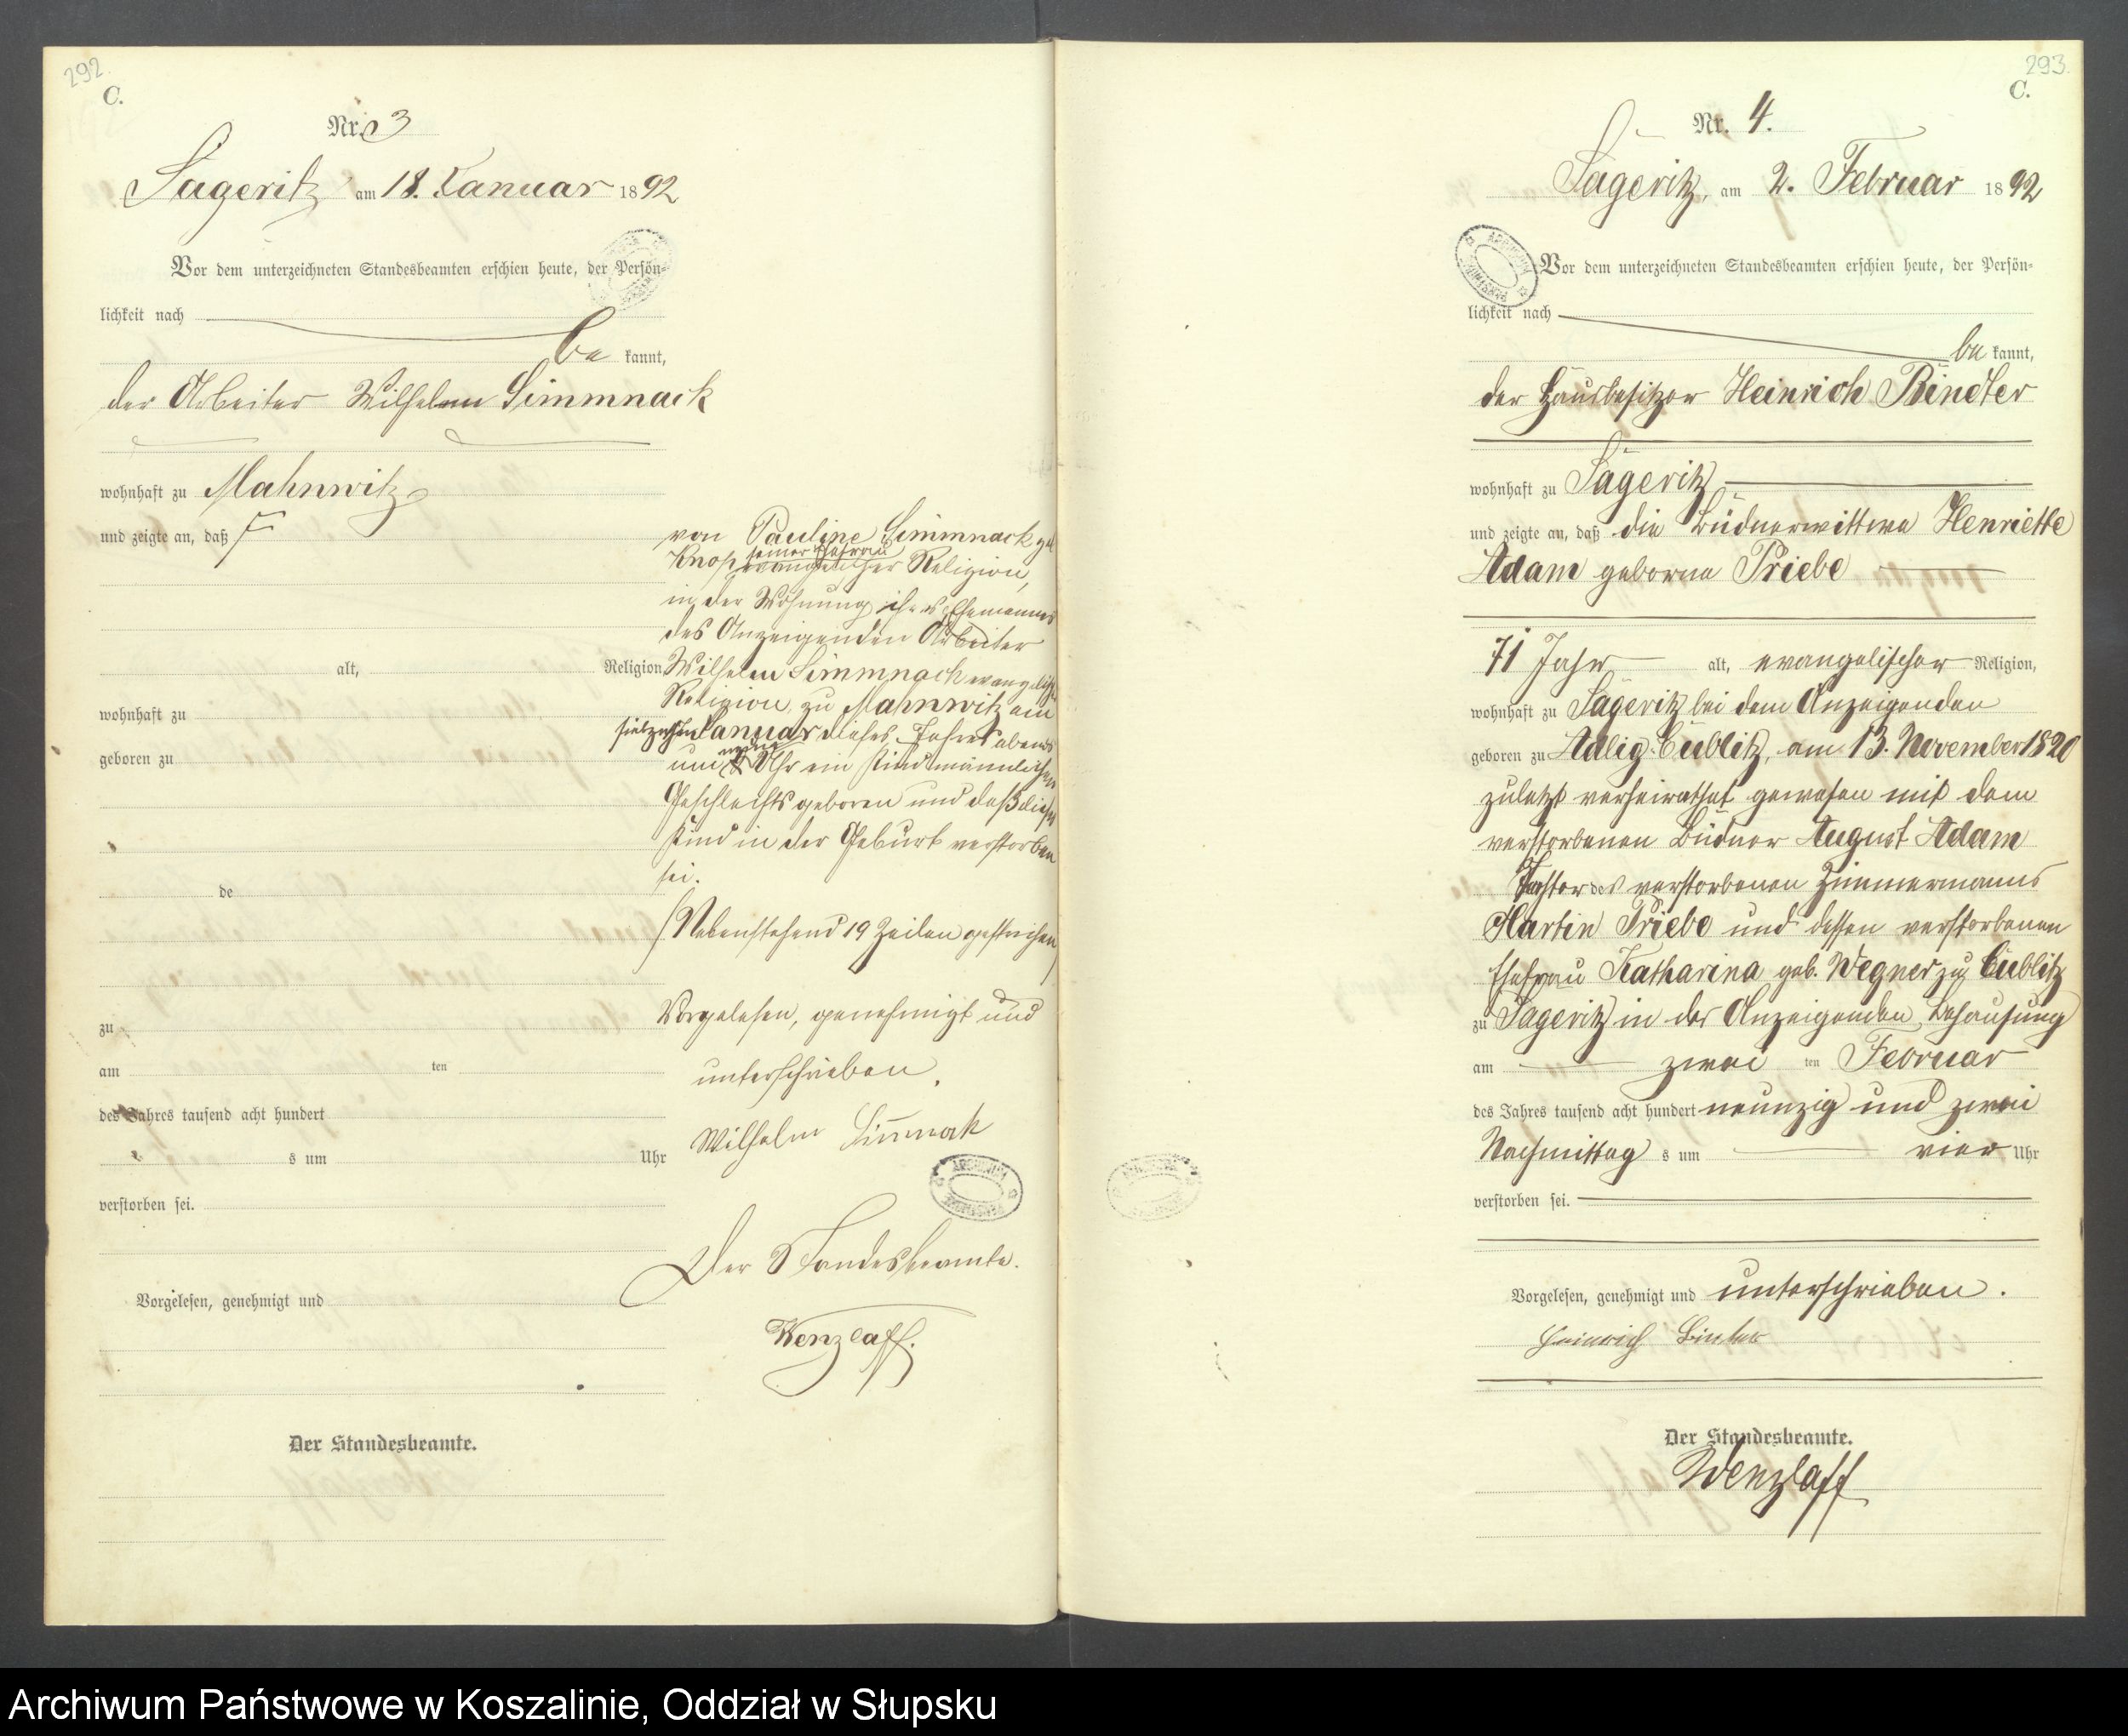 292
C.
Nr. 3
Sageritz am 18. Januar 1892
Vor dem unterzeichneten Standesbeamten erschien heute, der Persön-
lichkeit nach
be kannt,
der Arbeiter Wilhelm Simmnack
wohnhaft zu Mahnwitz
und zeigte an, daß
alt, Religion
wohnhaft zu
geboren zu
de
zu
am ten
des Jahres tausend acht hundert
s um Uhr
verstorben sei.
Vorgelesen, genehmigt und
Der Standesbeamte.
von Pauline Simmnack geb
Knop seiner Ehefrau
evangelischer Religion,
in der Wohnung ihres Ehemannes
des Anzeigenden Arbeiter
Wilhelm Simmnack evangelischer
Religion zu Mahnwitz am
siebzehnten Januar dieses Jahres abends
um Uhr ein Kind männlichen
Geschlechts geboren und daß dieses
Kind in der Geburt verstorben
sei.
Nebenstehend 19 Zeilen gestrichen
Vorgelesen, genehmigt und
unterschrieben.
Wilhelm Simmack
Der Standesbeamte.
Wenzlaff.
293.
C.
Nr. 4.
Sageritz, am 2. Februar 1892
Vor dem unterzeichneten Standesbeamten erschien heute, der Persön-
lichkeit nach
be kannt,
der Hausbesitzer Heinrich Binder
wohnhaft zu Sageritz
und zeigte an, daß die Büdnerwittwe Henriette
Adam geborne Priebe
71 Jahr alt, evangelischer Religion,
wohnhaft zu Sageritz bei dem Anzeigenden
geboren zu Adlig Cublitz, am 13. November 1820
zuletzt verheirathet gewesen mit dem
verstorbenen Büdner August Adam
Tochter des verstorbenen Zimmermanns
Martin Priebe und dessen verstorbenen
Ehefrau Katharina geb. Wegner zu Cublitz
zu Sageritz in der Anzeigenden Behausung
am zwei ten Februar
des Jahres tausend acht hundert neunzig und zwei
Nachmittag s um vier Uhr
verstorben sei.
Vorgelesen, genehmigt und unterschrieben.
Heinrich Binder
Der Standesbeamte.
Wenzlaff
Archiwum Państwowe w Koszalinie, Oddział w Słupsku